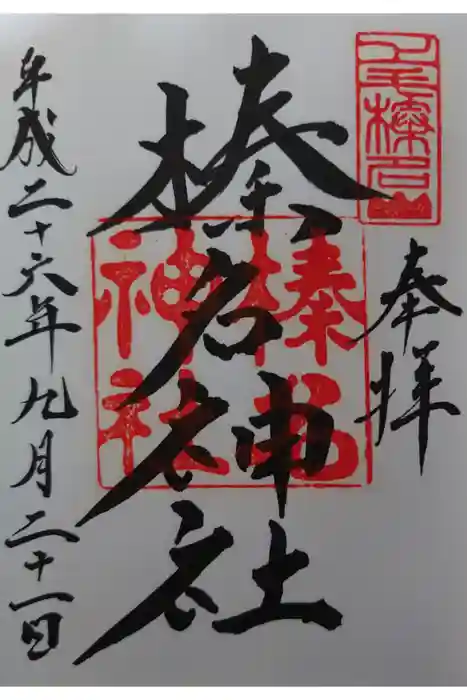 奉拝
上毛榛名山
榛名神社
榛名神社
平成二十六年九月二十一日